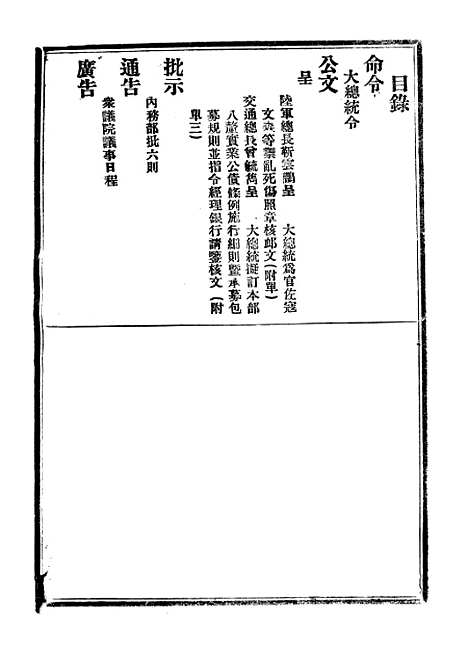 目錄
命令
大總統令
公文
呈
陸軍總長靳雲鵬呈　大總統爲官佐寇
文森等禦亂死傷照章核卹文(附單)
交通總長曾毓雋呈　大總統擬訂本部
八釐實業公債條例施行細則暨承募包
募規則並指令經理銀行請鑒核文(附
單三)
批示
內務部批六則
通告
衆議院議事日程
廣告